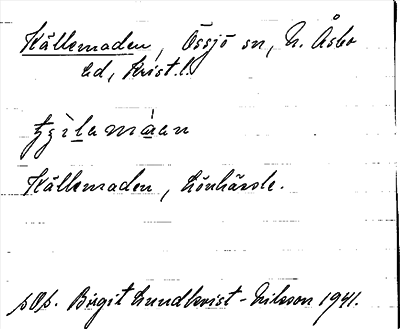 Källemaden, Össjö sn, N. Åsbo
hd, Krist. l.
Källemaden, Lönhärde.
pOp. Birgit Lundkvist-Nilsson 1941.